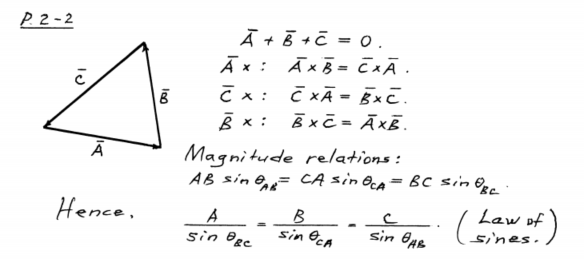 P.2-2
A̅ + B̅ + C̅ = 0.
A̅ × : A̅ × B̅ = C̅ × A̅.
C̅ × : C̅ × A̅ = B̅ × C̅.
B̅ × : B̅ × C̅ = A̅ × B̅.
C̅
B̅
A̅
Magnitude relations:
AB sin θ_AB = CA sin θ_CA = BC sin θ_BC.
Hence, A / sin θ_BC = B / sin θ_CA = C / sin θ_AB. (Law of sines.)